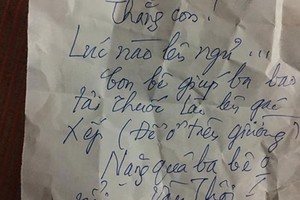 Thằng con!
Lúc nào lên ngủ ...
Con bê giúp ba bao
tải thuốc lào lên gác
xếp (Để ở trên giường)
Nặng quá ba bê ô